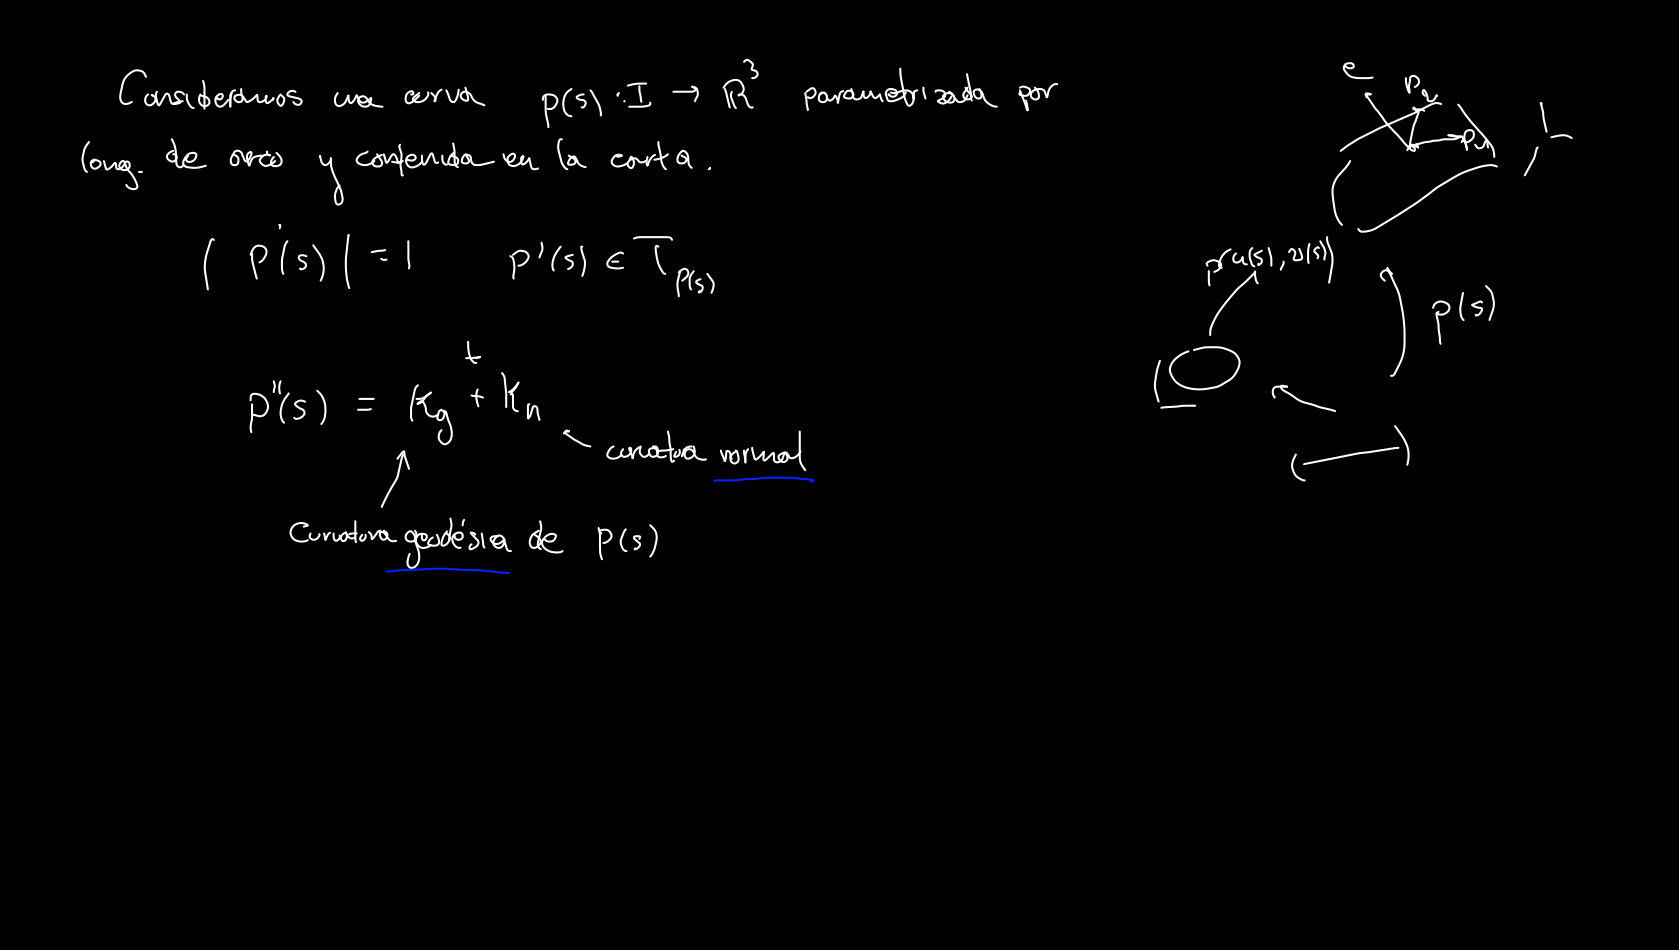 Consideramos una curva p(s) : I → ℝ³ parametrizada por
long. de arco y contenida en la carta.
|p'(s)| = 1    p'(s) ∈ T_{p(s)}
t
p''(s) = K_g + K_n
curvatura normal
Curvatura geodésica de p(s)
e
p_v
p_u
p(u(s), v(s))
p(s)